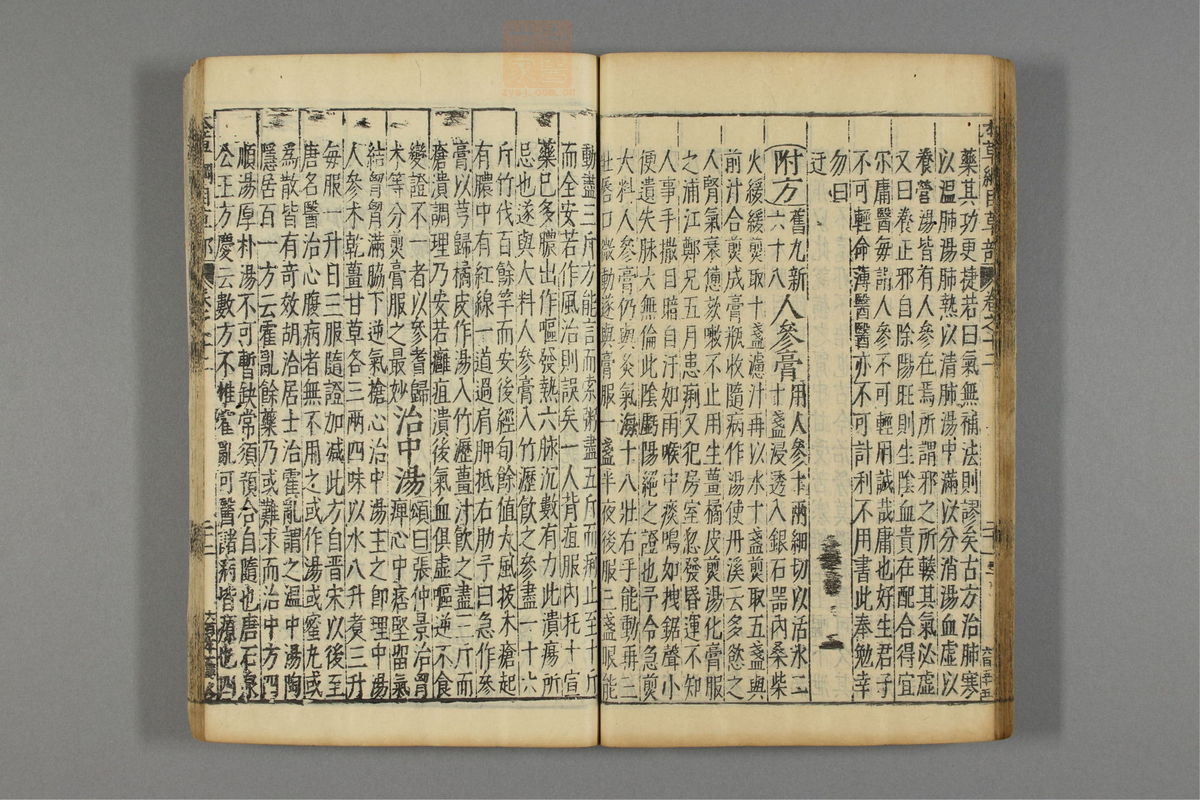 藥其功更捷若曰氣無補法則謬矣古方治肺寒
以温肺湯肺熱以清肺湯中滿以分消湯血虛以
養營湯皆有人參在焉所謂邪之所輳其氣必虛
又曰養正邪自除陽旺則生陰血貴在配合得宜
尔庸醫每謂人參不可輕用誠哉庸也好生君子
不可輕命薄醫醫亦不可計利不用書此奉勉幸
勿曰
迂
附方舊九新六十八人參膏用人參十兩細切以活水二十盞浸透入銀石器內桑柴
火緩緩煎取十盞濾汁再以水十盞煎取五盞與
前汁合煎成膏瓶收隨病作湯使丹溪云多慾之
人腎氣衰憊欬嗽不止用生薑橘皮煎湯化膏服
之浦江鄭兄五月患痢又犯房室忽發昏運不知
人事手撒目暗自汗如雨喉中痰鳴如拽鋸聲小
便遺失脉大無倫此陰虧陽絕之證也予令急煎
大料人參膏仍與灸氣海十八壯右手能動再三
壯唇口微動遂與膏服一盞半夜後服三盞眼能
動盡三斤方能言而索粥盡五斤而痢止至十斤
而全安若作風治則誤矣一人背疽服內托十宣
藥已多膿出作嘔發熱六脉沉數有力此潰瘍所
忌也遂與大料人參膏入竹瀝飲之參盡一十六
斤竹伐百餘竿而安後經旬餘值大風拔木瘡起
有膿中有紅線一道過肩胛抵右肋予曰急作參
膏以芎歸橘皮作湯入竹瀝薑汁飲之盡三斤而
瘡潰調理乃安若癰疽潰後氣血俱虛嘔逆不食
變證不一者以參耆歸
术等分煎膏服之最妙治中湯頌曰張仲景治胷痺心中痞堅留氣
結胷胷滿脇下逆氣搶心治中湯主之即理中湯
人參术乾薑甘草各三兩四味以水八升煮三升
每服一升日三服隨證加減此方自晉宋以後至
唐名醫治心腹病者無不用之或作湯或蜜丸或
爲散皆有奇效胡洽居士治霍亂謂之温中湯陶
隱居百一方云霍亂餘藥乃或難求而治中方四
順湯厚朴湯不可暫缺常須預合自隨也唐石泉
公王方慶云數方不惟霍亂可醫諸病皆療也四